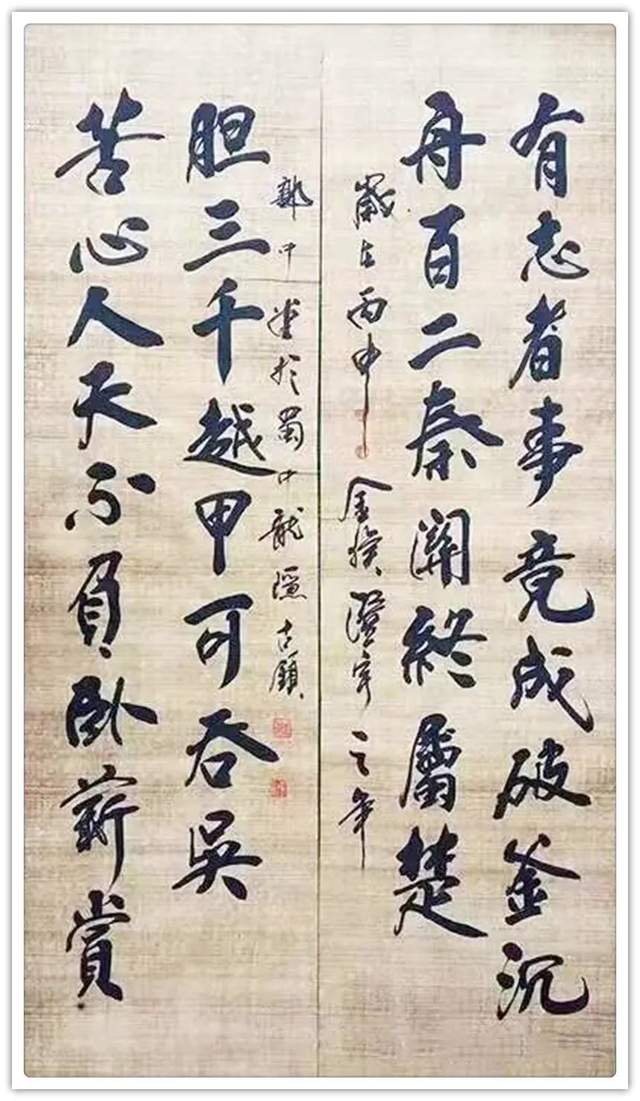 有志者事竟成破釜沉
舟百二秦關終屬楚
歲在丙申金猴之年
苦心人天不負卧薪賞
胆三千越甲可吞吳
中於蜀中龍隱古鎮